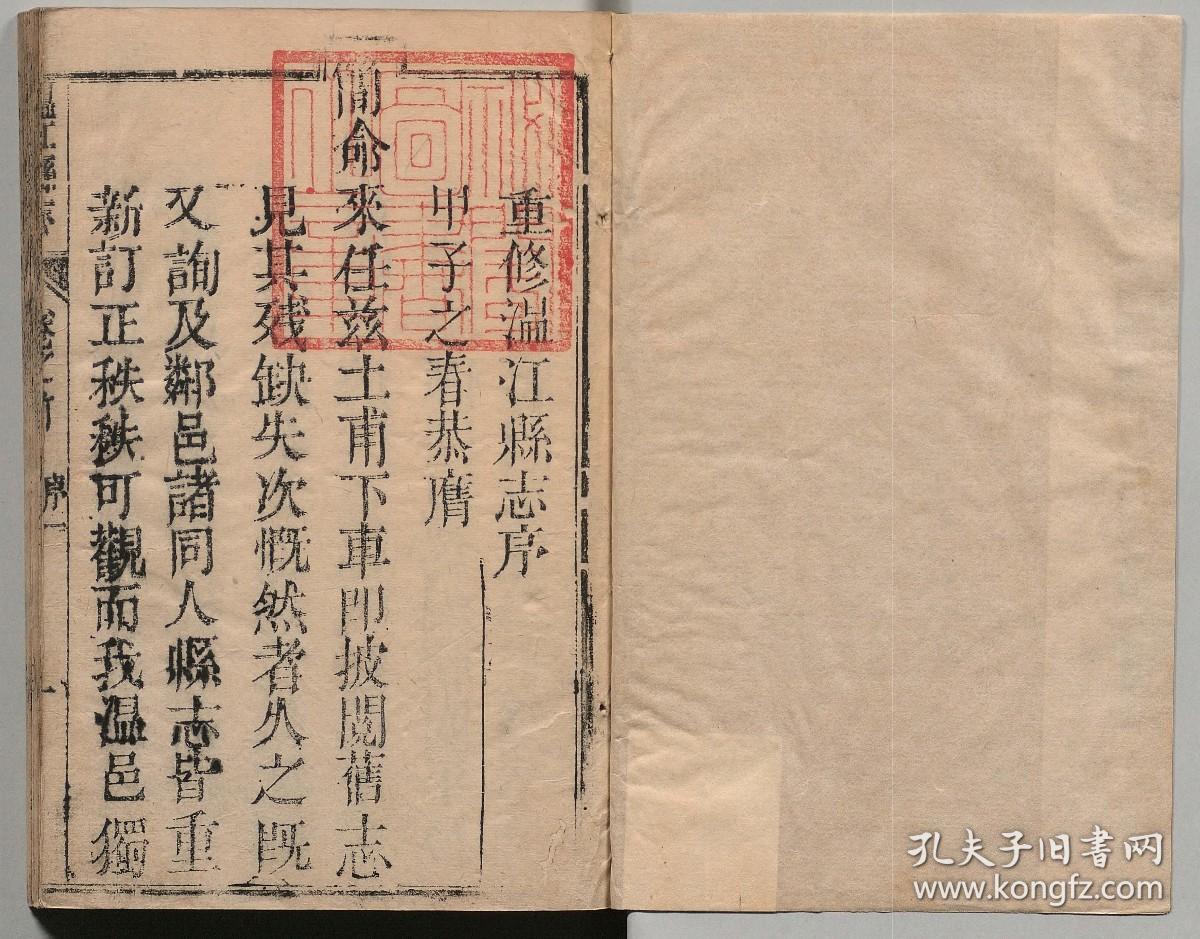 重修溫江縣志序
甲子之春恭膺
簡命來任兹土甫下車即披閱舊志
見其残缺失次慨然者久之既
又詢及鄰邑諸同人縣志皆重
新訂正秩秩可觀而我溫邑獨
序一
孔夫子旧書网
www.kongfz.com